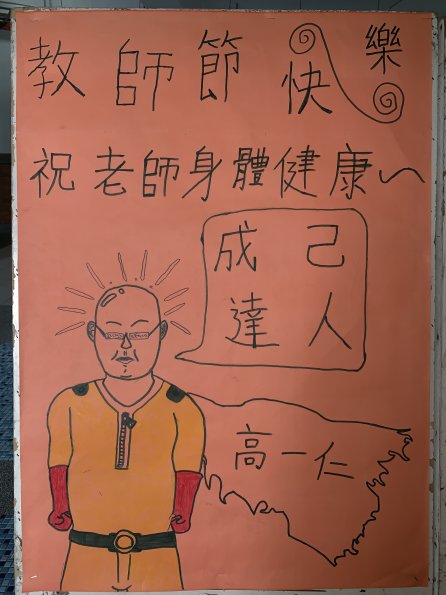 教師節快樂
祝老師身體健康~
成己
達人
高一仁